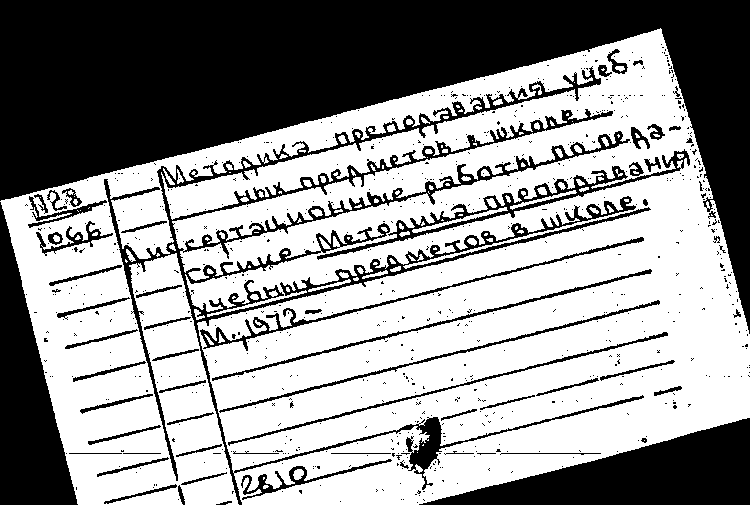 Методика преподавания учеб-
ных предметов в школе.
П28
1066
Диссертационные работы по педа-
гогике. Методика преподавания
учебных предметов в школе.
М., 1972-
2810